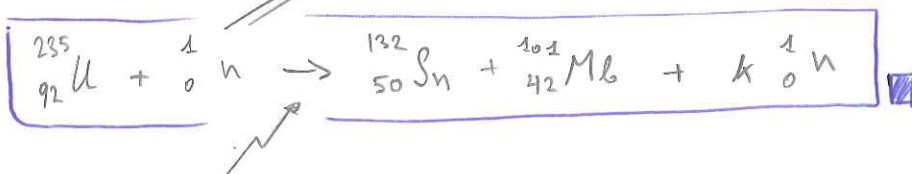 ²³⁵₉₂U + ¹₀n → ¹³²₅₀Sn + ¹⁰¹₄₂Mb + k ¹₀n